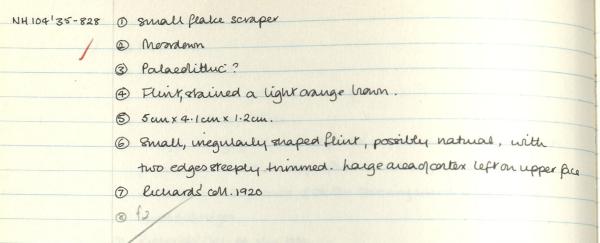 NH104'35-828 ① Small flake scraper
② Moordown
③ Palaeolithic?
④ Flint, stained a light orange brown.
⑤ 5cm x 4.1cm x 1.2cm.
⑥ Small, irregularly shaped flint, possibly natural, with
two edges steeply trimmed. Large area of cortex left on upper face
⑦ Richards' coll. 1920
⑧ f2